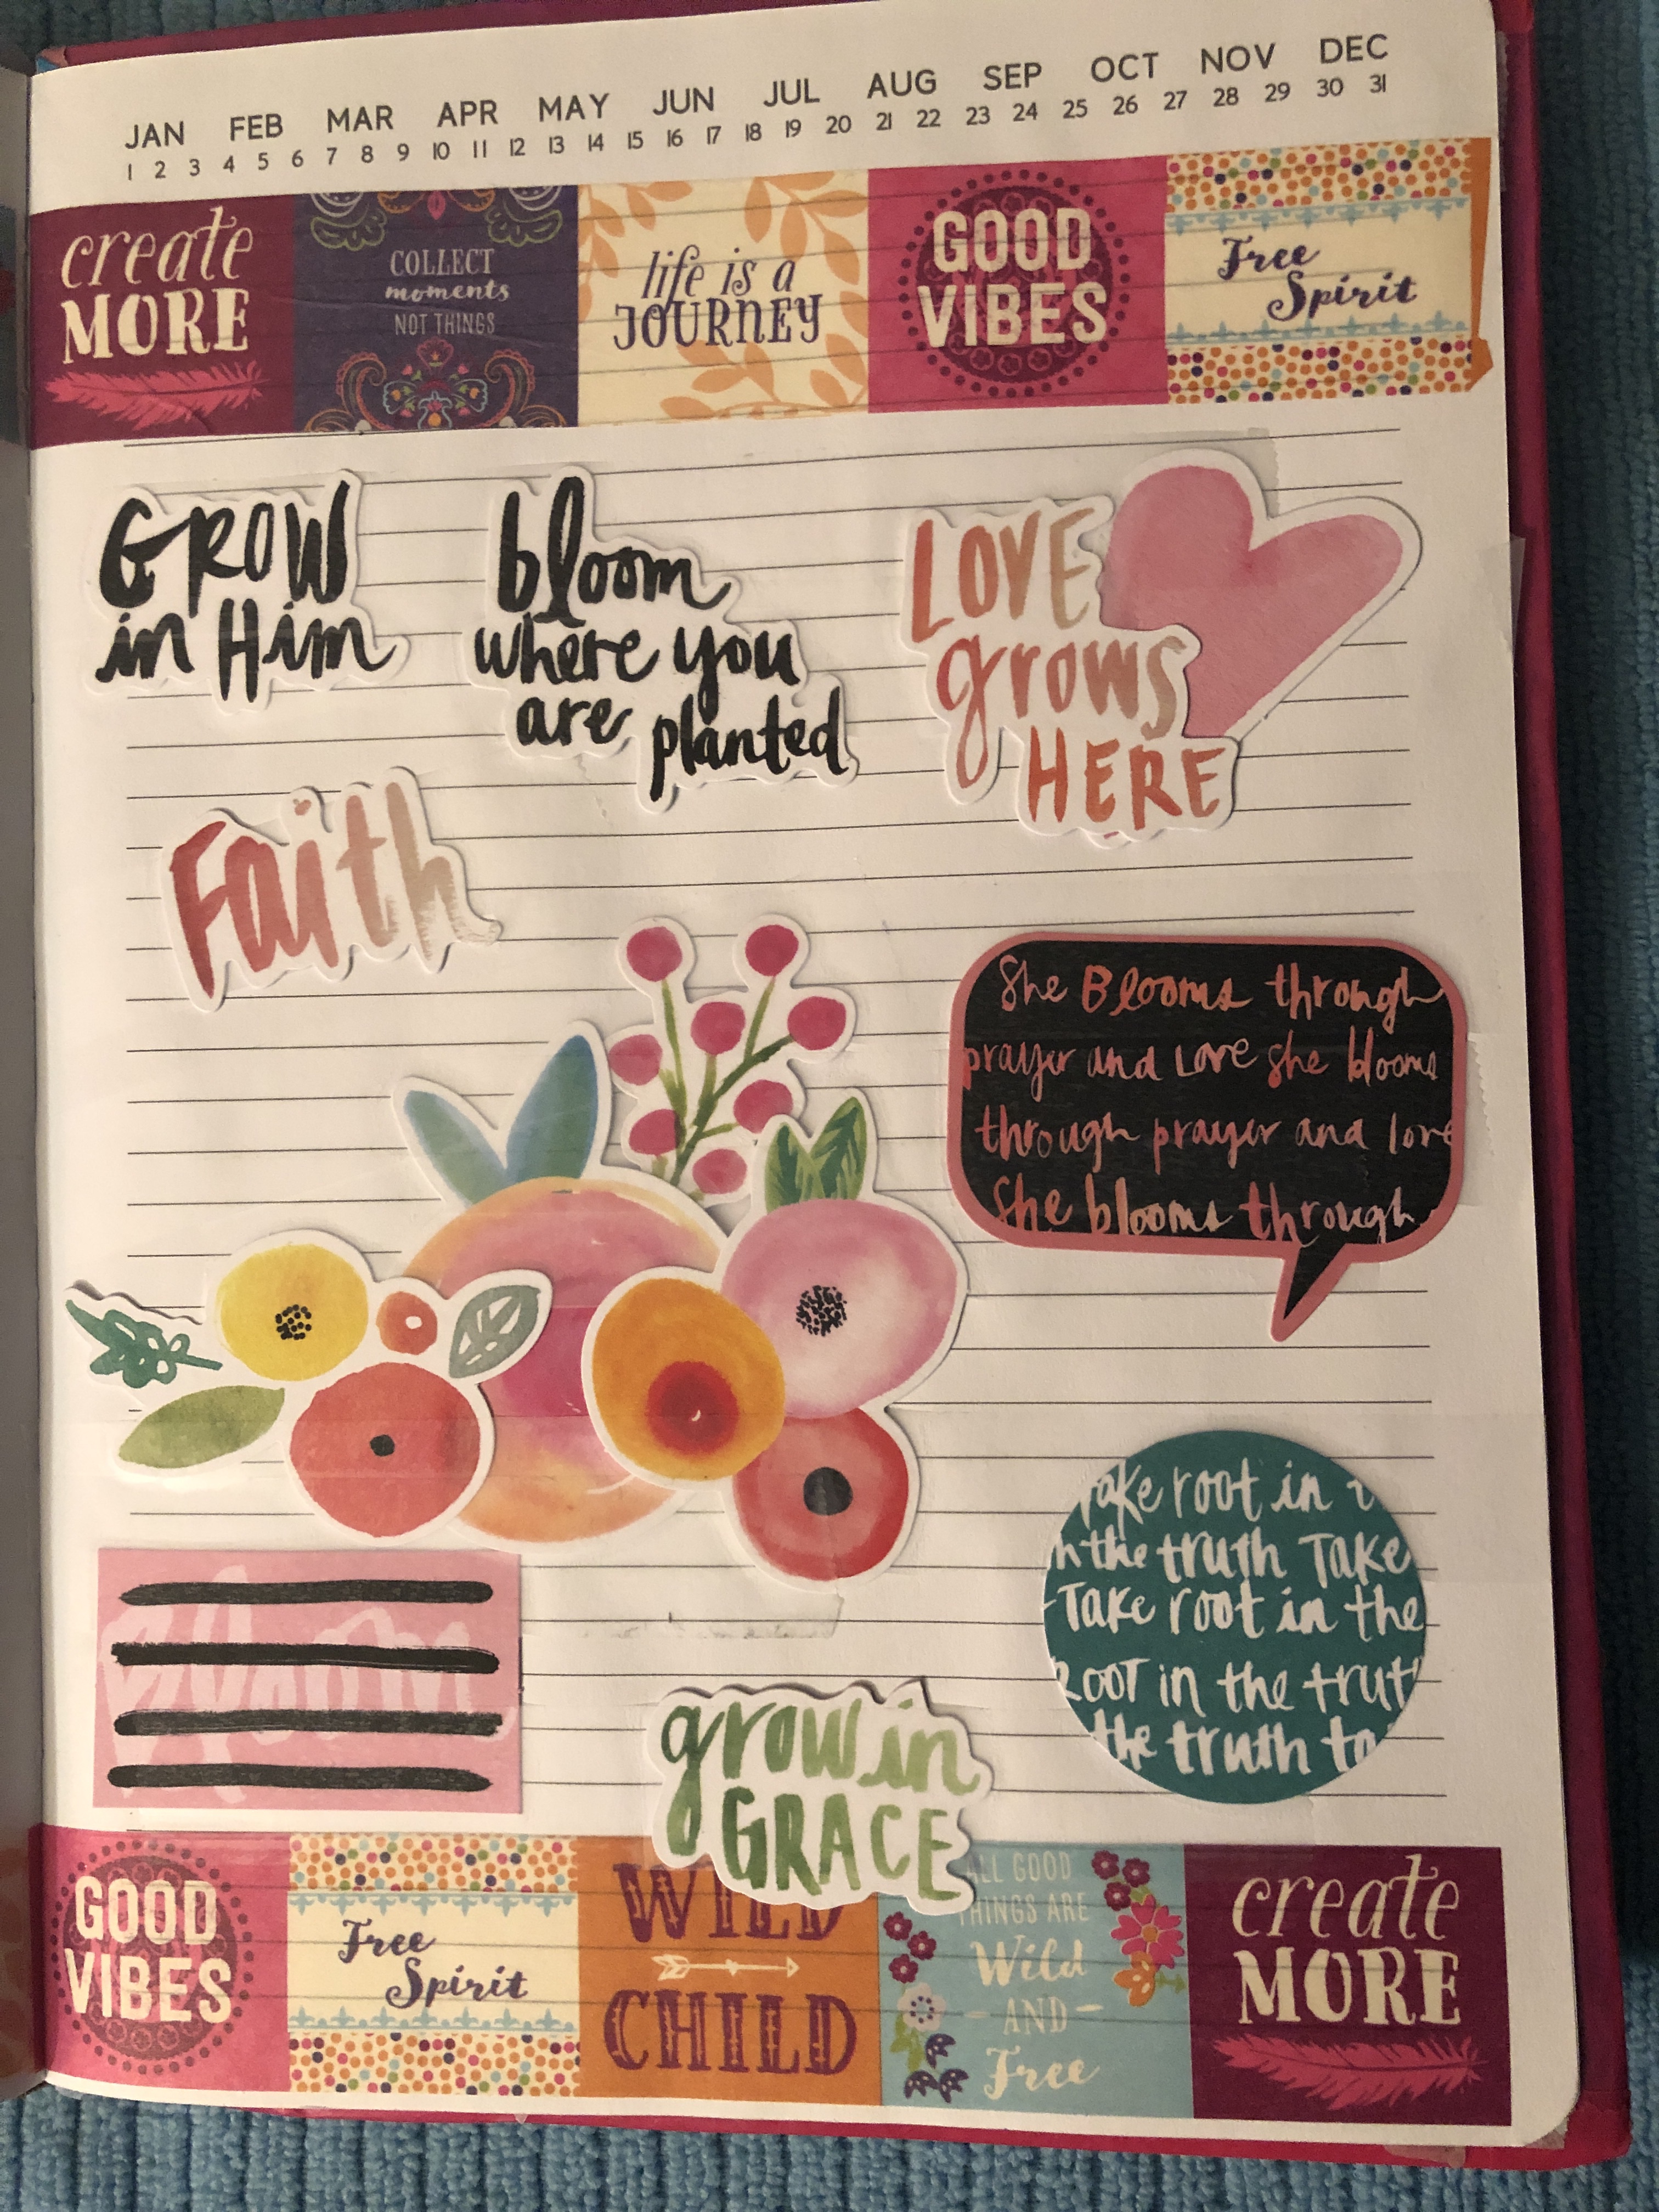 JAN FEB MAR APR MAY JUN JUL AUG SEP OCT NOV DEC
1 2 3 4 5 6 7 8 9 10 11 12 13 14 15 16 17 18 19 20 21 22 23 24 25 26 27 28 29 30 31
create
MORE
COLLECT
moments
NOT THINGS
life is a
JOURNEY
GOOD
VIBES
Free
Spirit
GROW
in Him
bloom
where you
are planted
LOVE
grows
HERE
Faith
She Blooms through
prayer and Love She blooms
through prayer and love
She blooms through
Take root in
the truth Take
Take root in the
ROOT in the trut
the truth ta
Bloom
grow in
GRACE
GOOD
VIBES
Free
Spirit
WILD
CHILD
ALL GOOD
THINGS ARE
Wild
-AND-
Free
create
MORE